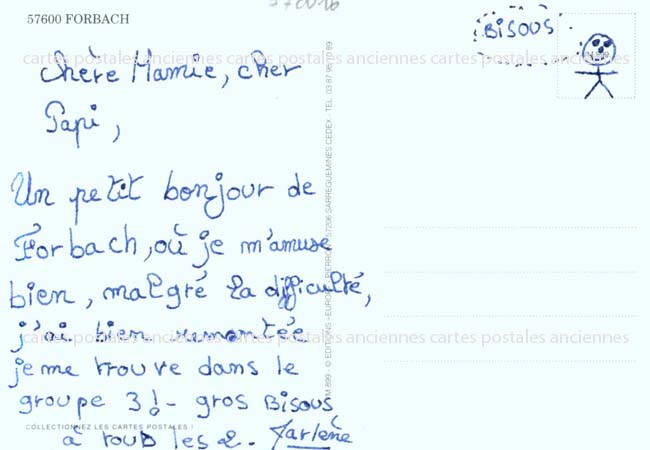 57600 FORBACH
BISOUS
cartes postales anciennes cartes postales anciennes cartes postales anciennes
Chère Mamie, cher
Papi,
Un petit bonjour de
Forbach, où je m'amuse
bien, malgré la difficulté,
j'ai bien remontée
cartes postales anciennes cartes postales anciennes cartes postales anciennes
je me trouve dans le
groupe 3! - gros BISOUS
COLLECTIONNEZ LES CARTES POSTALES !
à tous les 2. Jarlène
57206 SARREGUEMINES CEDEX - TEL. 03 87
© EDITIONS